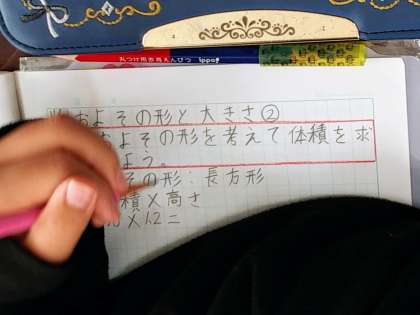 丸つけ用赤青えんぴつ ippo!
およその形と大きさ②
よその形を考えて体積を求
よう。
の形:長方形
積×高さ
×12=